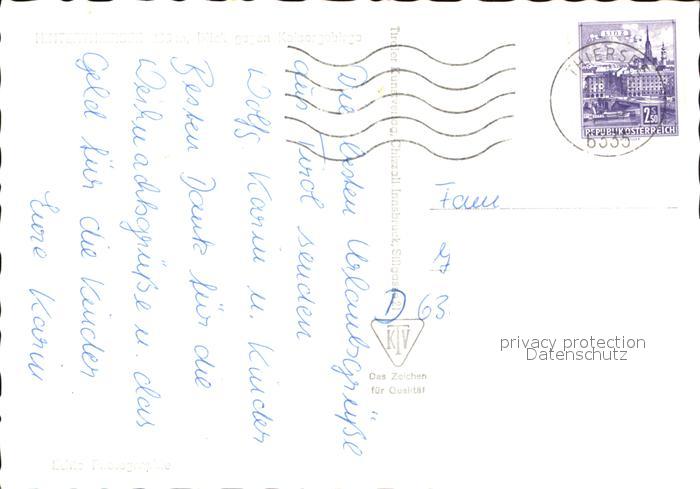 HINTERTHIERSEE Blick gegen Kaisergebirge
Die besten Urlaubsgrüße
aus Tirol senden
Wolfg. Karin u. Kinder
Besten Dank für die
Weihnachtsgrüße u. das
Geld für die Kinder
Eure Karin
Echte Photographie
Tiroler Kunstverlag Chizzali Innsbruck,
KTV
Das Zeichen
für Qualität
LINZ
2.50
REPUBLIK ÖSTERREICH
THIERSEE
6335
Fam
D 63
privacy protection
Datenschutz